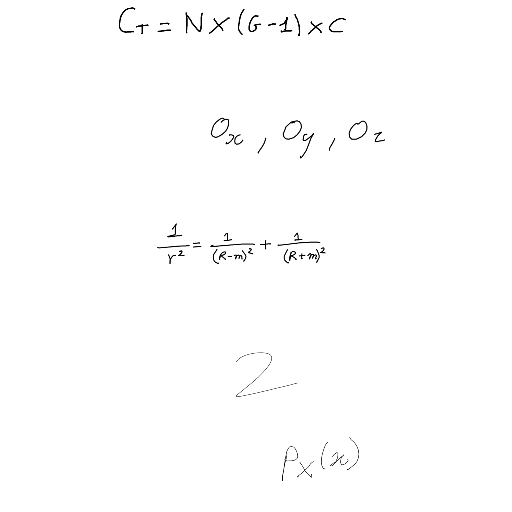 C_T = N × (G-1) × C
O_x , O_y , O_z
1/r² = 1/(R-m)² + 1/(R+m)²
2
P_X(x)